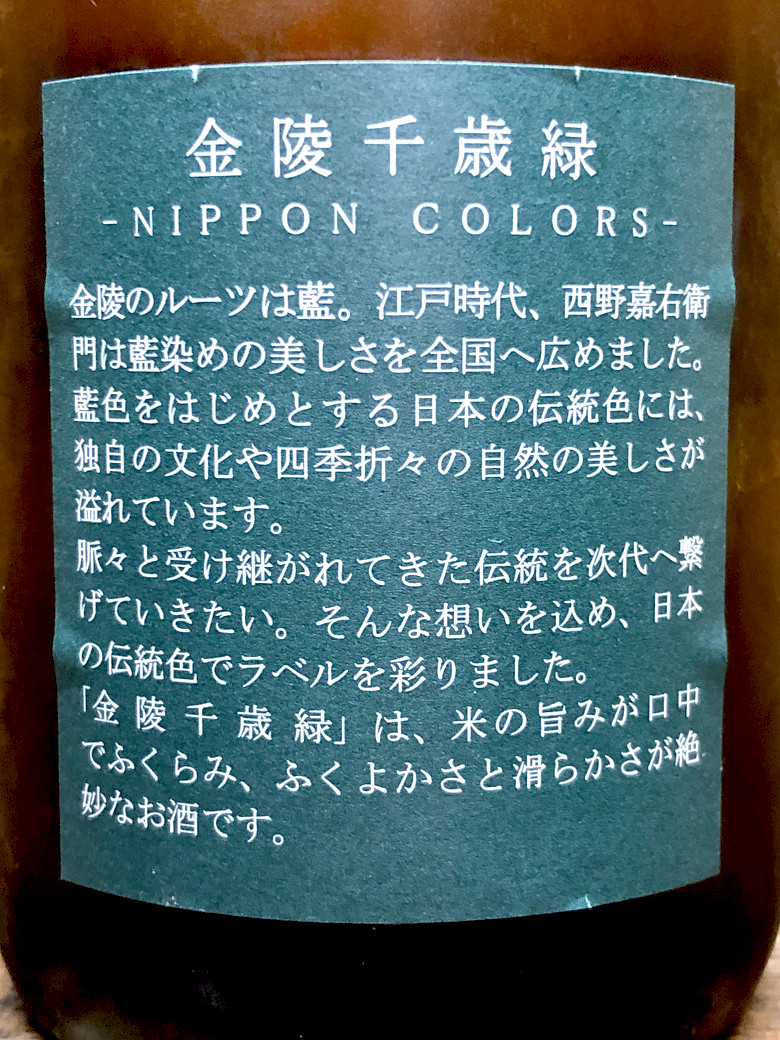 金陵千歳緑
-NIPPON COLORS-
金陵のルーツは藍。江戸時代、西野嘉右衛
門は藍染めの美しさを全国へ広めました。
藍色をはじめとする日本の伝統色には、
独自の文化や四季折々の自然の美しさが
溢れています。
脈々と受け継がれてきた伝統を次代へ繋
げていきたい。そんな想いを込め、日本
の伝統色でラベルを彩りました。
「金陵千歳緑」は、米の旨みが口中
でふくらみ、ふくよかさと滑らかさが絶
妙なお酒です。